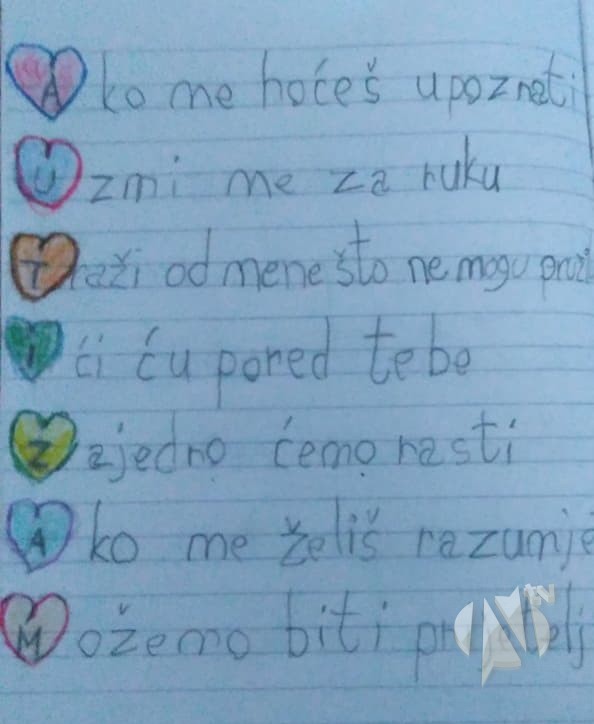 Ako me hoćeš upoznati
Uzmi me za ruku
Traži od mene što ne mogu
Ići ću pored tebe
Zajedno ćemo rasti
Ako me želiš
Možemo biti
tv